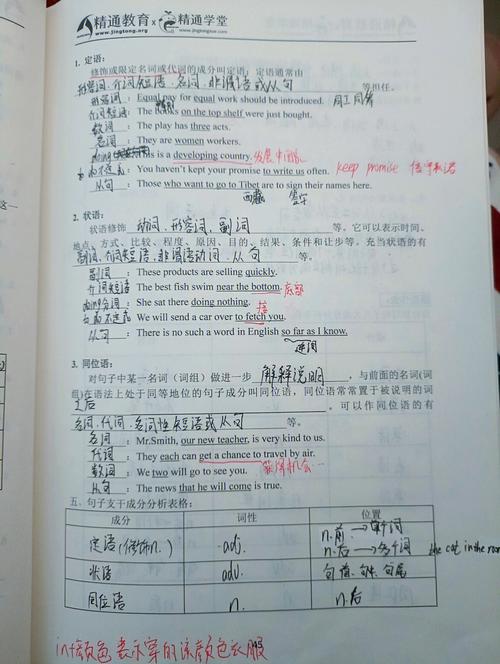 精通教育 x 精通学堂
www.jingtong.org www.jingtongstar.com
1. 定语:
修饰或限定名词或代词的成分叫定语; 定语通常由
形容词、介词短语、名词、非谓语或从句 等担任.
形容词 : Equal pay for equal work should be introduced. 同工同酬
介词短语 : The books on the top shelf were just bought.
数词 : The play has three acts.
名词 : They are women workers.
doing : This is a developing country. 发展中国家
to do不定式 : You haven't kept your promise to write us often. keep promise 信守承诺
从句 : Those who want to go to Tibet are to sign their names here.
西藏 签字
2. 状语:
状语修饰 动词、形容词、副词 等。它可以表示时间、
地点、方式、比较、程度、原因、目的、结果、条件和让步等。充当状语的有
副词、介词短语、非谓语动词、从句 等。
副词 : These products are selling quickly.
介词短语 : The best fish swim near the bottom. 底部
doing分词 : She sat there doing nothing.
to do不定式 : We will send a car over to fetch you. 接
从句 : There is no such a word in English so far as I know.
连词
3. 同位语:
对句子中某一名词(词组)做进一步 解释说明 , 与前面的名词(词
组)在语法上处于同等地位的句子成分叫同位语。同位语常常置于被说明的词
之后 。可以作同位语的有
名词、代词、名词性短语或从句 等。
名词 : Mr.Smith, our new teacher, is very kind to us.
代词 : They each can get a chance to travel by air.
数词 : We two will go to see you. 获得机会
从句 : The news that he will come is true.
五、句子支干成分分析表格:
成分 词性 位置
定语(修饰n.) adj. n.前 → 单个词
n.后 → 多个词 the cat in the room
状语 adv. 句首、句中、句尾
同位语 n. n.后
in+颜色 表示穿的该颜色衣服